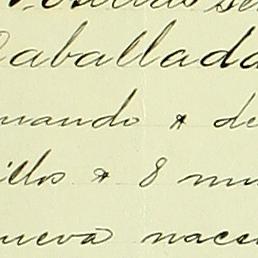 Caballada
nando * de
illos * 8 mu
nueva nace